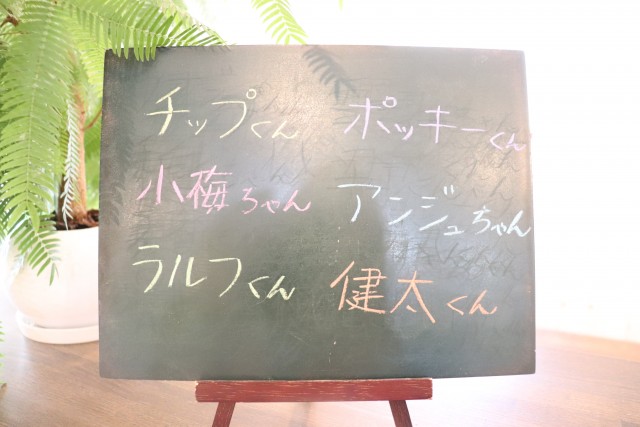 チップくん ポッキーくん
小梅ちゃん アンジュちゃん
ラルフくん 健太くん